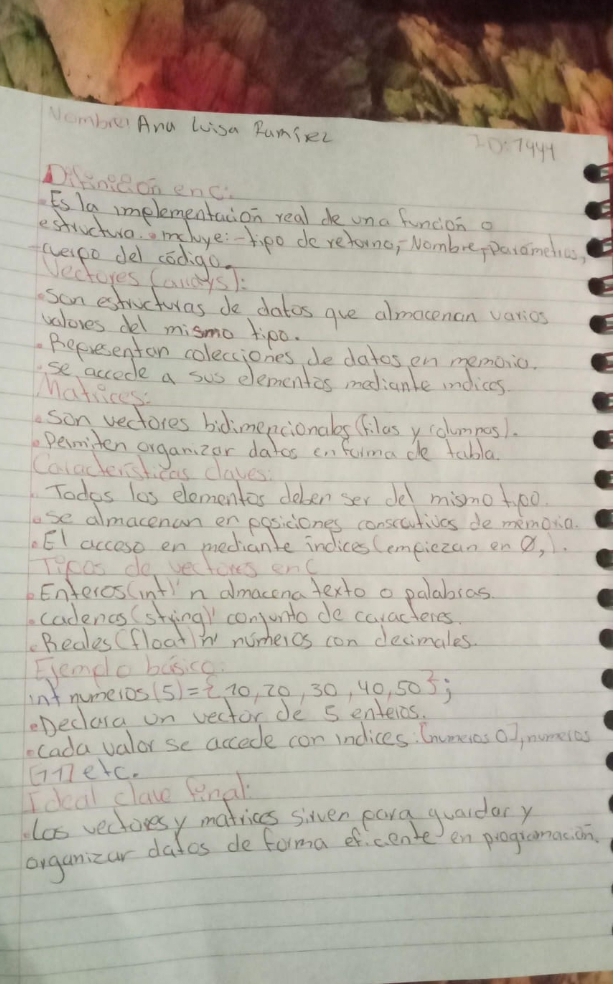 Nombre: Ana Luisa Ramírez
ID: 7444
Difinición en C:
• Es la implementación real de una función o
estructura. • incluye: - tipo de retorno, - Nombre, parámetros,
- cuerpo del código.
Vectores (arrays):
• Son estructuras de datos que almacenan varios
valores del mismo tipo.
• Representan colecciones de datos en memoria.
• Se accede a sus elementos mediante indices.
Matrices:
• Son vectores bidimencionales (filas y columnas).
• Permiten organizar datos en forma de tabla.
Características claves:
. Todos los elementos deben ser del mismo tipo.
• Se almacenan en posiciones consecutivas de memoria.
• El acceso en mediante índices (empiezan en 0,).
Tipos de vectores en C
• Enteros (int)' n almacena texto o palabras.
• Cadenas (string)' conjunto de caracteres.
• Reales (float) n' números con decimales.
Ejemplo básico:
int numeros (5) = {10, 20, 30, 40, 50};
• Declara un vector de 5 enteros.
• Cada valor se accede con indices: [numeros 0], numeros
[11] etc.
Ideal clave final:
. Los vectores y matrices sirven para guardar y
organizar datos de forma eficiente en programación.